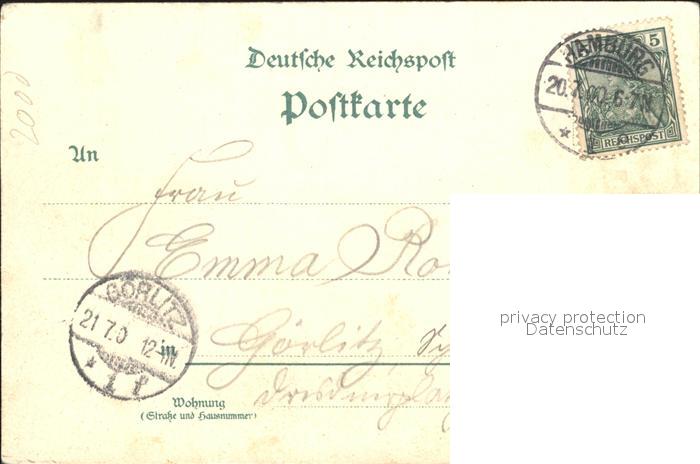 Deutsche Reichspost
Postkarte
HAMBURG
5
20.7.00. 6-7N.
REICHSPOST
2000
An
Frau
Emma
Görlitz
GÖRLITZ
21 7.0 12-1N.
in
Wohnung
(Straße und Hausnummer)
privacy protection
Datenschutz